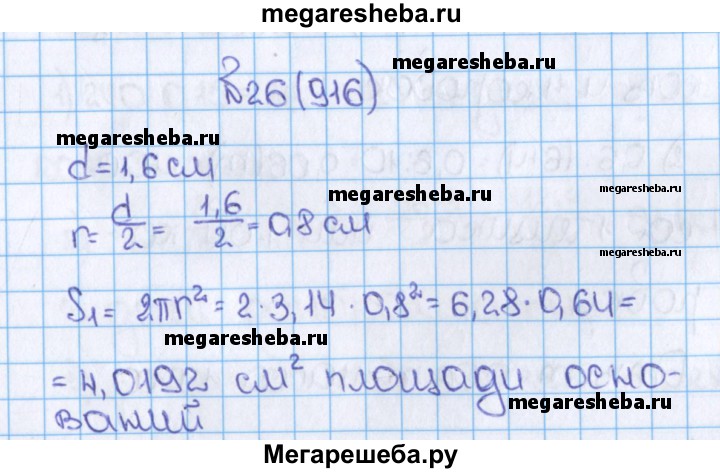 megaresheba.ru
№26(916)
megaresheba.ru
megaresheba.ru
d=1,6 см
megaresheba.ru
megaresheba.ru
r= d/2 = 1,6/2 = 0,8 см
megaresheba.ru
S₁= 2πr²= 2·3,14·0,8²= 6,28·0,64=
megaresheba.ru
=4,0192 см² площади осно-
megaresheba.ru
ваний
Мегарешеба.ру